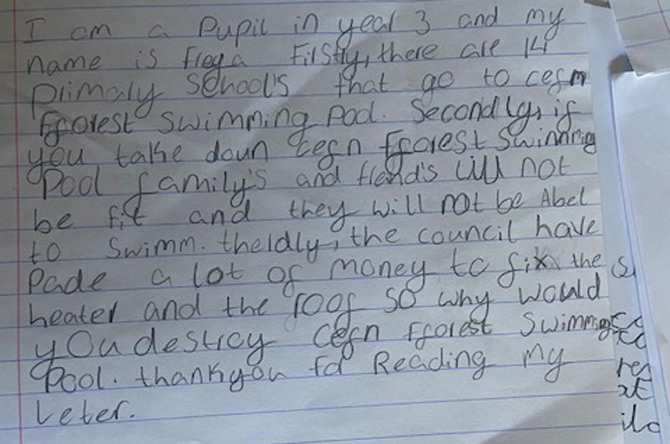 I am a Pupil in year 3 and my
name is freya Filstly, there are 14
Primaly School's that go to cefn
fforest swimming Pool. Secondly, if
you take down cefn fforest swimming
Pool family's and friend's will not
be fit and they will not be Abel
to swimm. thirldly, the council have
Pade a lot of money to fix the
heater and the roof so why would
you destroy cefn fforest swimming
Pool. thankyou for Reading my
Leter.